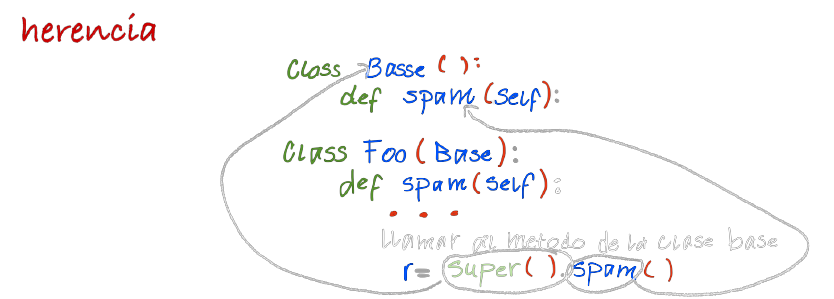 herencia
Class Basse():
def spam(Self):
Class Foo(Base):
def spam(Self):
...
Llamar al metodo de la clase base
r= Super().spam()